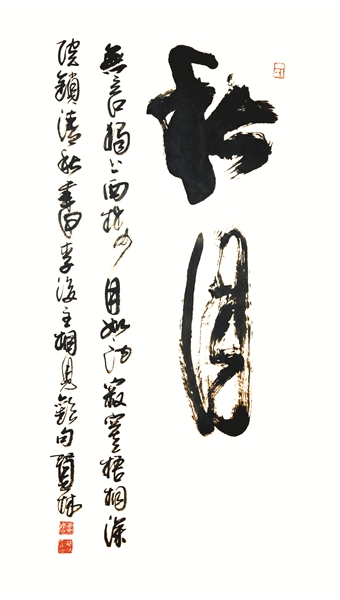 秋月
無言獨上西樓月如鈎寂寞梧桐深
院鎖清秋書李後主相見歡句